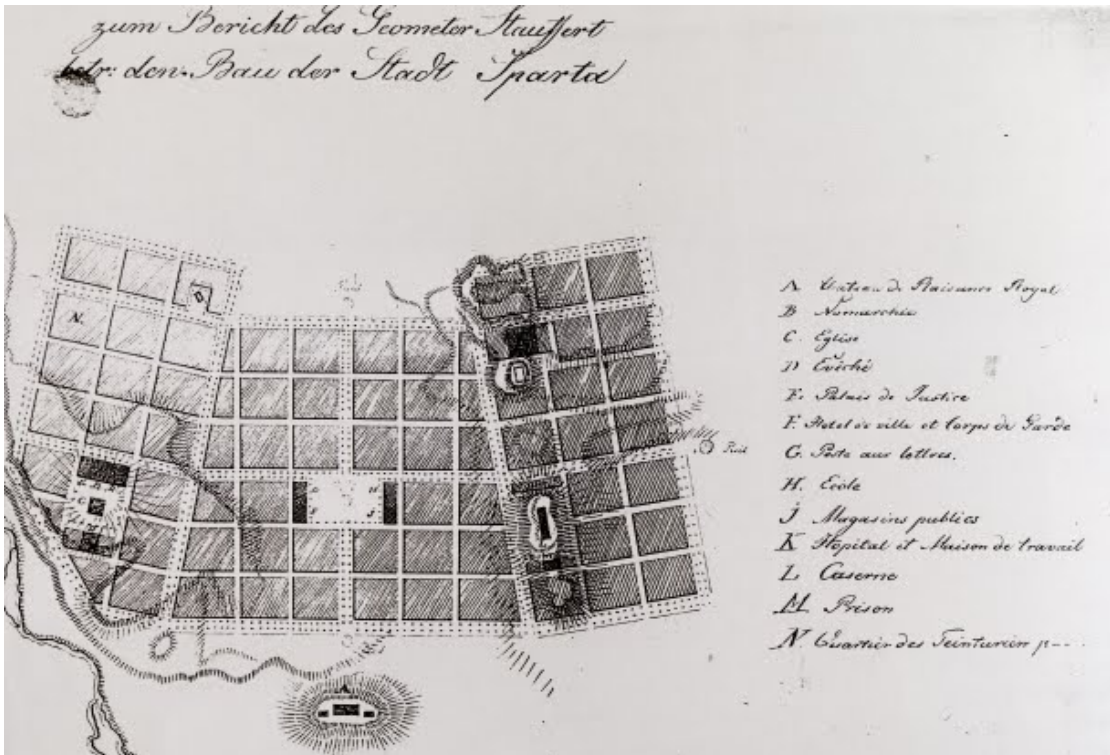 zum Bericht des Geometer Stauffert
betr: den Bau der Stadt Sparta
A Chateau de Plaisance Royal
B Nomarchie
C. Eglise
D Evêché
E. Palais de Justice
F. Hotel de ville et Corps de Garde
G. Poste aux lettres.
H. Ecole
J Magasins publics
K Hopital et Maison de travail
L Caserne
M Prison
N. Quartier des Teinturiers
N.
A